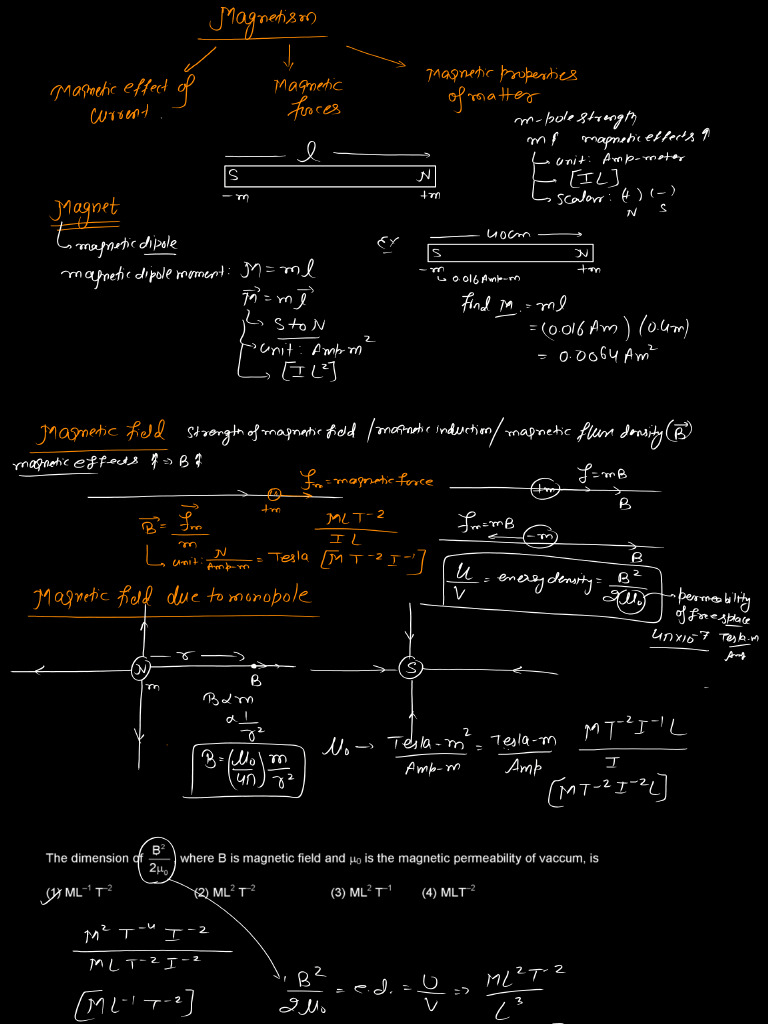 Magnetism
Magnetic effect of current.
Magnetic forces
Magnetic properties of matter
m-pole strength
m↑ magnetic effects ↑
unit: Amp-meter
[IL]
scalar: (+) (-)
N S
l
S N
-m +m
Magnet
magnetic dipole
magnetic dipole moment: M = ml
M⃗ = m l⃗
S to N
unit: Amp-m²
[IL²]
Ex
40cm
S N
-m +m
0.016 Amp-m
Find M. = ml
= (0.016 Am) (0.4m)
= 0.0064 Am²
Magnetic field strength of magnetic field / magnetic induction / magnetic flux density (B⃗)
magnetic effects ↑ ⇒ B↑
fm = magnetic force
+m
B⃗ = f⃗m / m
unit: N / Amp-m = Tesla
MLT⁻² / IL
[MT⁻²I⁻¹]
f = mB
+m
B
fm = mB
-m
B
U/V = energy density = B²/2μ₀
permeability of free space
4π×10⁻⁷ Tesla-m / Amp
Magnetic field due to monopole
N r
m B
B ∝ m
∝ 1/r²
B = (μ₀/4π) m/r²
S
μ₀ → Tesla-m² / Amp-m = Tesla-m / Amp
MT⁻²I⁻¹L / I
[MT⁻²I⁻²L]
The dimension of B²/2μ₀ where B is magnetic field and μ₀ is the magnetic permeability of vaccum, is
(1) ML⁻¹ T⁻² (2) ML² T⁻² (3) ML² T⁻¹ (4) MLT⁻²
M² T⁻⁴ I⁻² / MLT⁻² I⁻²
[ML⁻¹ T⁻²]
B²/2μ₀ = e.d. = U/V ⇒ ML²T⁻² / L³